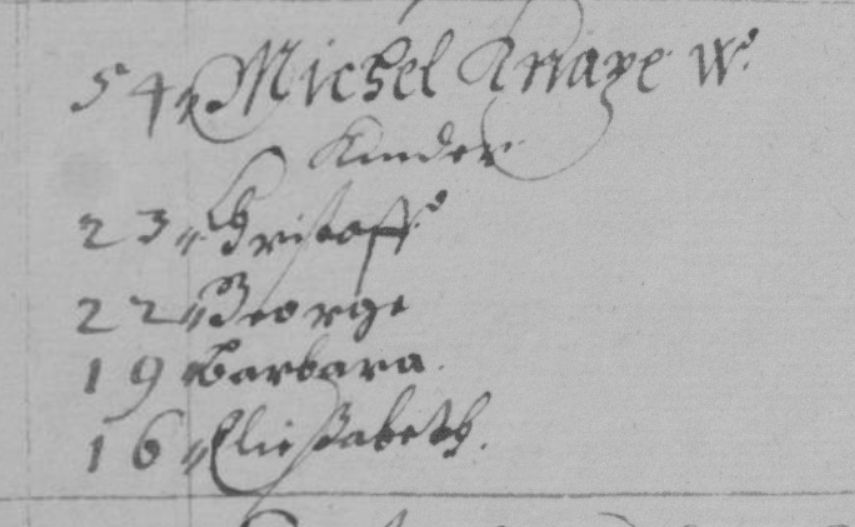 54 Michel Knape W.
Kinder
23 Christoff
22 George
19 Barbara.
16 Eließabeth.